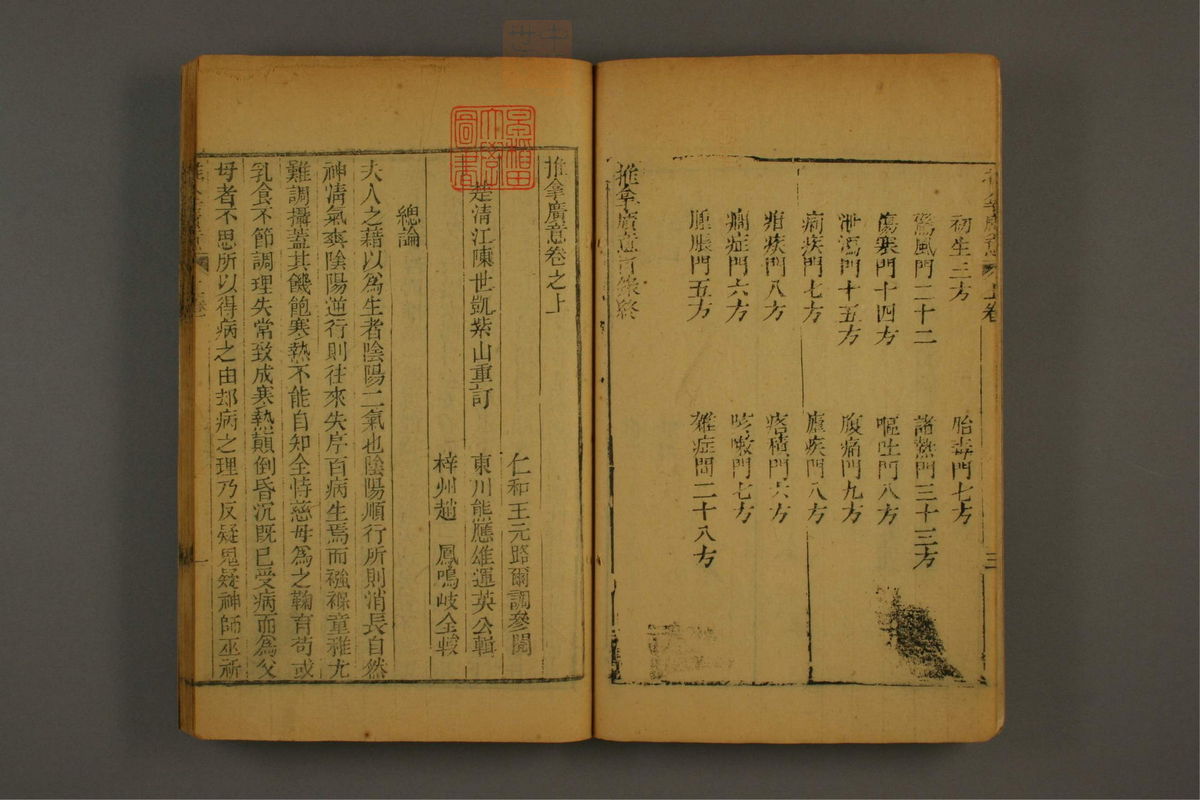 初生三方　胎毒門七方
驚風門二十二　諸熱門三十三方
傷寒門十四方　嘔吐門八方
泄瀉門十五方　腹痛門九方
痢疾門七方　瘧疾門八方
疳疾門八方　痞積門六方
癎症門六方　咳嗽門七方
腫脹門五方　雜症門二十八方
推拿廣意目錄終
推拿廣意卷之上
仁和王元路爾調參閱
楚清江陳世凱紫山重訂　東川熊應雄運英公輯
梓州趙　鳳鳴岐仝較
總論
夫人之藉以為生者陰陽二氣也陰陽順行所則消長自然
神清氣爽陰陽逆行則往來失序百病生焉而襁褓童稚尤
難調攝蓋其饑飽寒熱不能自知全恃慈母為之鞠育苟或
乳食不節調理失常致成寒熱顛倒昏沉既已受病而為父
母者不思所以得病之由却病之理乃反疑鬼疑神師巫祈